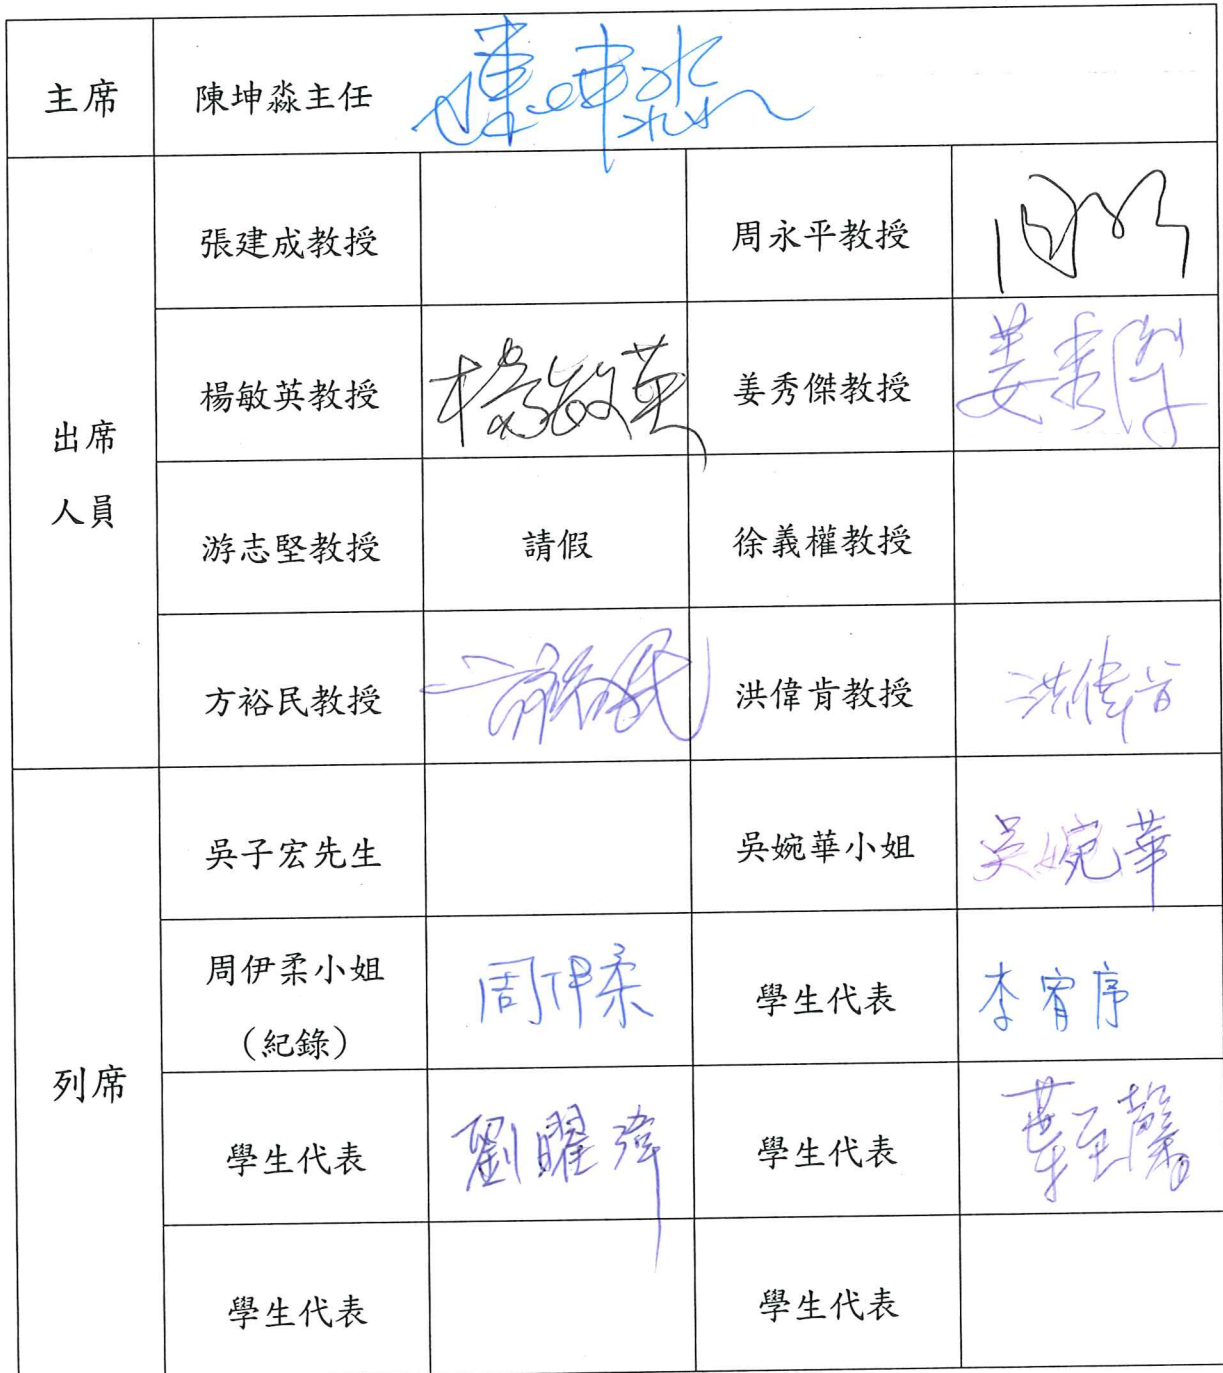 主席
陳坤淼主任
陳坤淼
出席
人員
張建成教授
周永平教授
楊敏英教授
楊敏英
姜秀傑教授
姜秀傑
游志堅教授
請假
徐義權教授
方裕民教授
方裕民
洪偉肯教授
洪偉肯
列席
吳子宏先生
吳婉華小姐
吳婉華
周伊柔小姐
(紀錄)
周伊柔
學生代表
李宥序
學生代表
劉曜瑋
學生代表
葉至馨
學生代表
學生代表